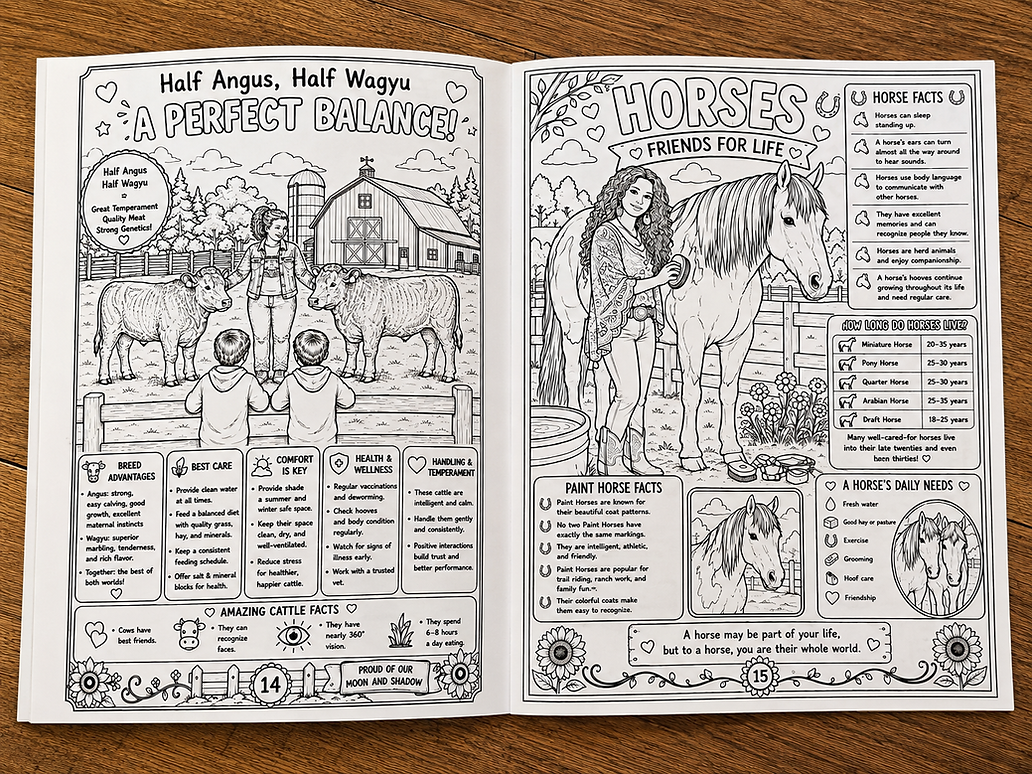 Half Angus, Half Wagyu
A PERFECT BALANCE!
Half Angus
Half Wagyu
Great Temperament
Quality Meat
Strong Genetics!
BREED
ADVANTAGES
• Angus: strong,
easy calving, good
growth, excellent
maternal instincts
• Wagyu: superior
marbling, tenderness,
and rich flavor.
• Together: the best of
both worlds!
BEST CARE
• Provide clean water
at all times.
• Feed a balanced diet
with quality grass,
hay, and minerals.
• Keep a consistent
feeding schedule.
• Offer salt & mineral
blocks for health.
COMFORT
IS KEY
• Provide shade
a summer and
winter safe space.
• Keep their space
clean, dry, and
well-ventilated.
• Reduce stress
for healthier,
happier cattle.
HEALTH &
WELLNESS
• Regular vaccinations
and deworming.
• Check hooves
and body condition
regularly.
• Watch for signs of
illness early.
• Work with a trusted
vet.
HANDLING &
TEMPERAMENT
• These cattle are
intelligent and calm.
• Handle them gently
and consistently.
• Positive interactions
build trust and
better performance.
AMAZING CATTLE FACTS
• Cows have
best friends.
• They can
recognize
faces.
• They have
nearly 360°
vision.
• They spend
6–8 hours
a day eating.
14
PROUD OF OUR
MOON AND SHADOW
HORSES
FRIENDS FOR LIFE
HORSE FACTS
Horses can sleep
standing up.
A horse's ears can turn
almost all the way around
to hear sounds.
Horses use body language
to communicate with
other horses.
They have excellent
memories and can
recognize people they know.
Horses are herd animals
and enjoy companionship.
A horse's hooves continue
growing throughout its life
and need regular care.
HOW LONG DO HORSES LIVE?
Miniature Horse 20–35 years
Pony Horse 25–30 years
Quarter Horse 25–30 years
Arabian Horse 25–35 years
Draft Horse 18–25 years
Many well-cared-for horses live
into their late twenties and even
been thirties!
PAINT HORSE FACTS
Paint Horses are known for
their beautiful coat patterns.
No two Paint Horses have
exactly the same markings.
They are intelligent, athletic,
and friendly.
Paint Horses are popular for
trail riding, ranch work, and
family fun.
Their colorful coats make
them easy to recognize.
A HORSE'S DAILY NEEDS
Fresh water
Good hay or pasture
Exercise
Grooming
Hoof care
Friendship
A horse may be part of your life,
but to a horse, you are their whole world.
15